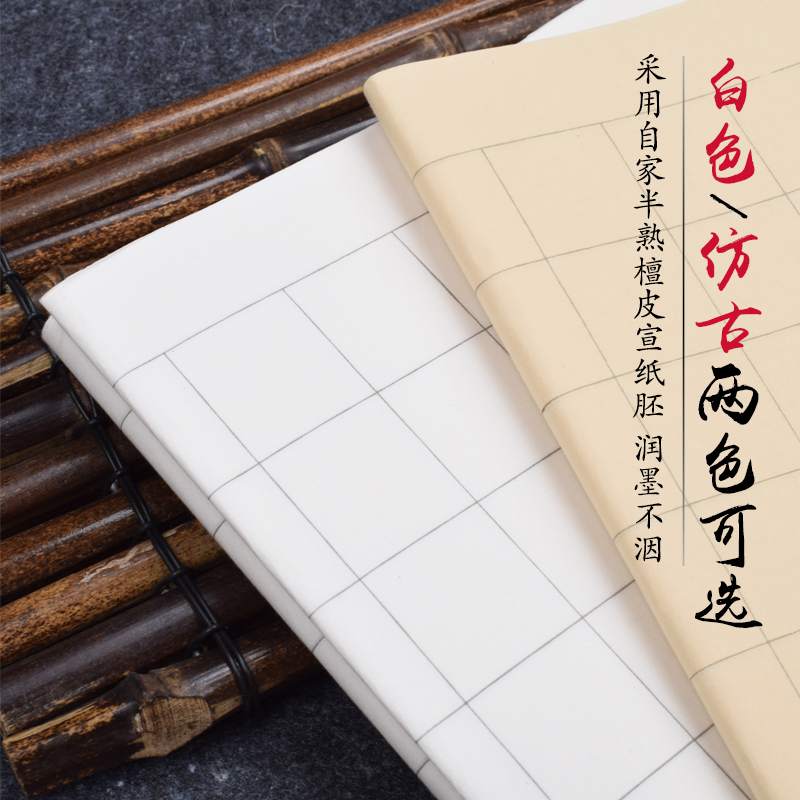 白色\仿古两色可选
采用自家半熟檀皮宣纸胚 润墨不洇